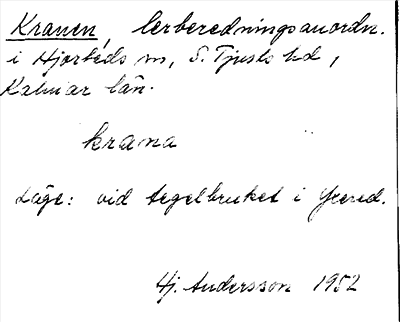 Kranen, lerberedningsanordn.
i Hjorteds sn, S. Tjusts hd,
Kalmar län.
krana
Läge: vid tegelbruket i Yxered.
Hj. Andersson 1952